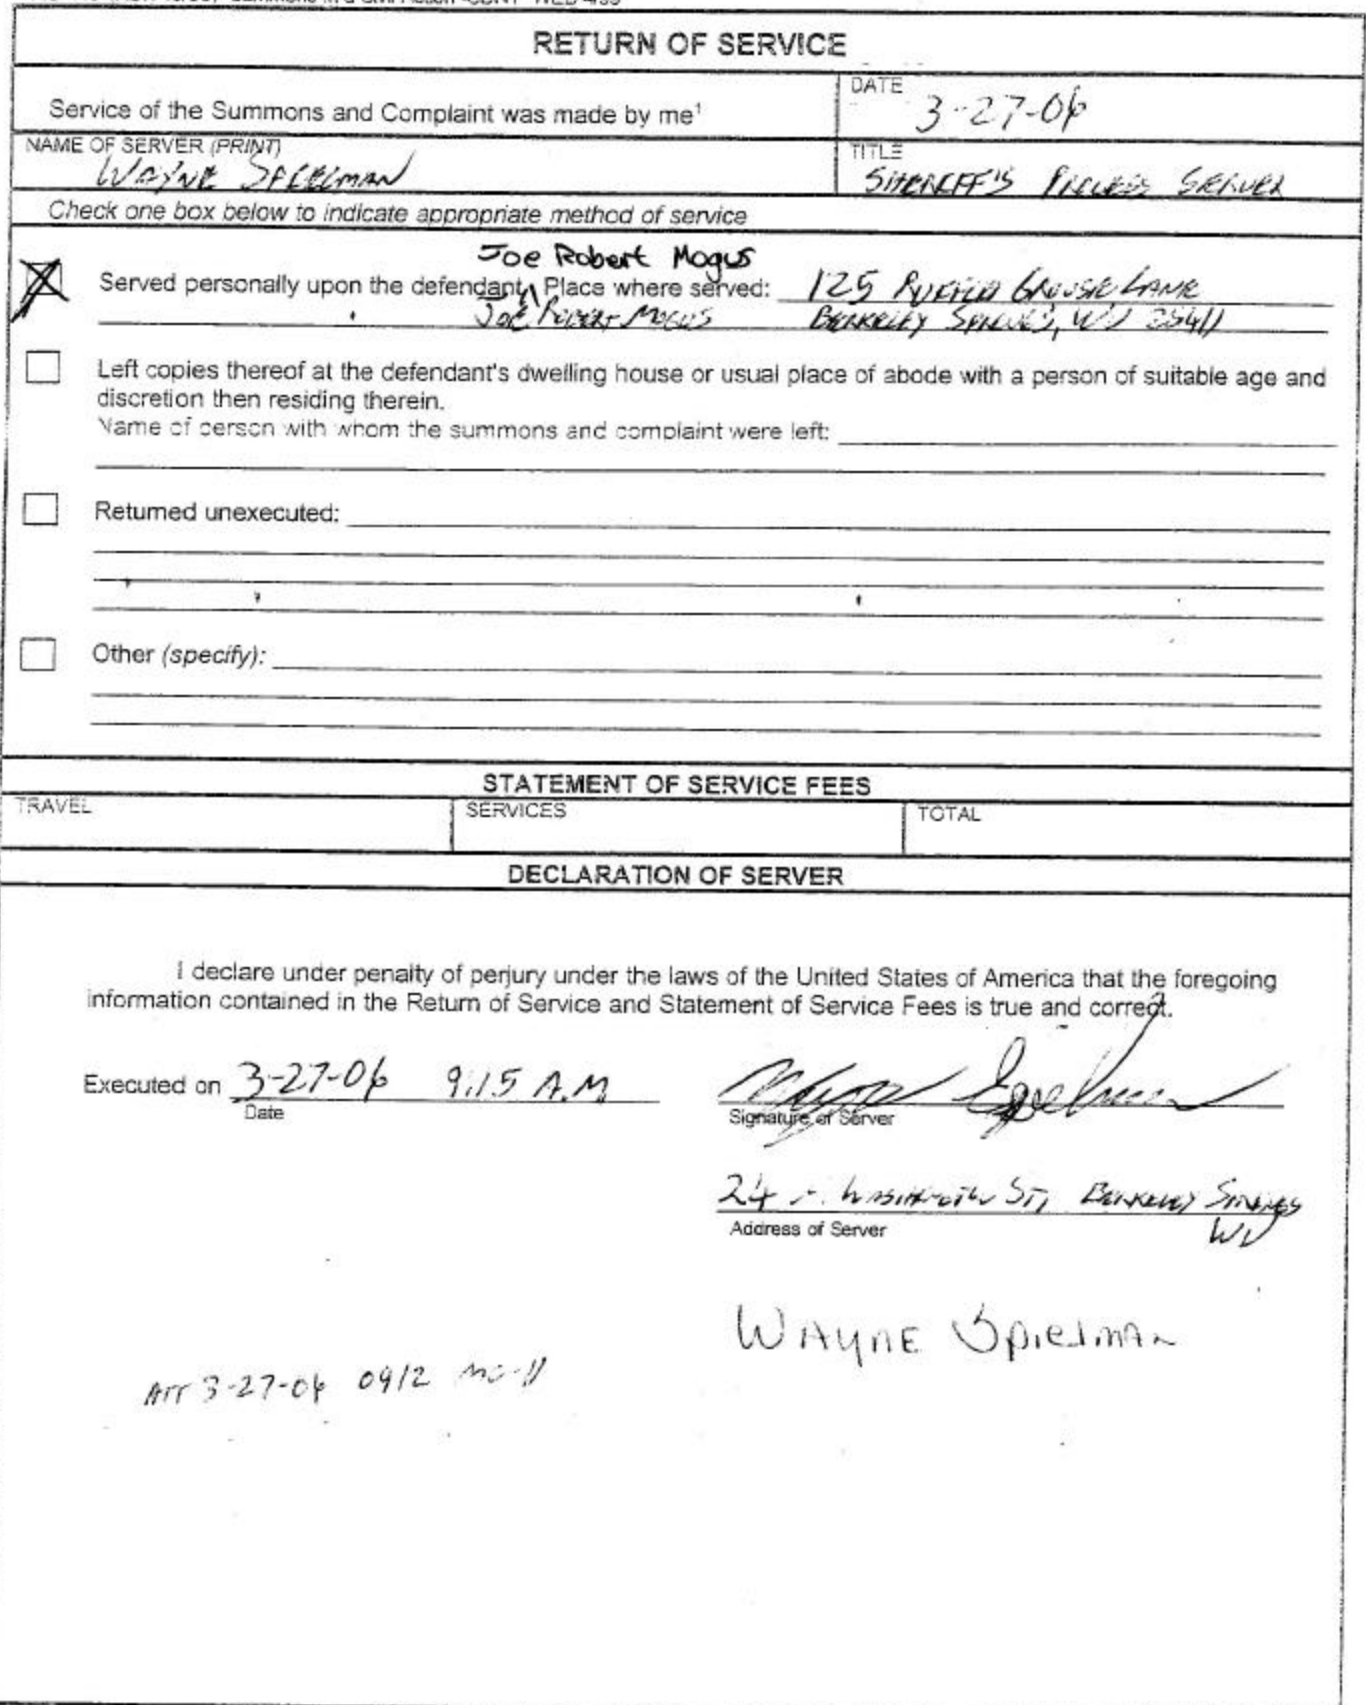 RETURN OF SERVICE
Service of the Summons and Complaint was made by me¹
DATE
3-27-06
NAME OF SERVER (PRINT)
WAYNE SPIELMAN
TITLE
SHERIFF'S PROCESS SERVER
Check one box below to indicate appropriate method of service
Joe Robert Mogus
Served personally upon the defendant. Place where served: 125 RUFFED GROUSE LANE
JOE ROBERT MOGUS BERKELEY SPRINGS, WV 25411
Left copies thereof at the defendant's dwelling house or usual place of abode with a person of suitable age and
discretion then residing therein.
Name of person with whom the summons and complaint were left:
Returned unexecuted:
Other (specify):
STATEMENT OF SERVICE FEES
TRAVEL
SERVICES
TOTAL
DECLARATION OF SERVER
I declare under penalty of perjury under the laws of the United States of America that the foregoing
information contained in the Return of Service and Statement of Service Fees is true and correct.
Executed on 3-27-06 9:15 A.M. Wayne Spielman
Date
Signature of Server
24 WASHINGTON ST, BERKELEY SPRINGS
WV
Address of Server
WAYNE Spielman
ATT 3-27-06 0912